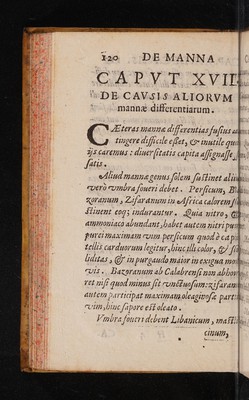 120 DE MANNA
CAPVT XVII
DE CAVSIS ALIORVM
mannæ differentiarum.
CÆteras mannæ differentias fusius at
tingere difficile esset, & inutile qu
ijs caremus: diuersitatis capita assignasse
satis.
Aliud mannæ genus solem sustinet ali
verò vmbra foueri debet. Persicum, B
zoranum, Zifaranum in Africa calorem s
stinent eoq; indurantur. Quia nitro, &
ammoniaco abundant, habet autem nitri pur
puræi maximam vim persicum quod è cap
tellis carduorum legitur, hinc illi color, & s
liditas, & in purgando maior in exigua mo
vis. Bazoranum ab Calabrensi non abhor
ret nisi quod minus sit vnctuosum: zifaran
autem participat maximam oleaginosæ parti
vim, hinc sapore est oleato.
Vmbra foueri debent Libanicum, mast
cinum,